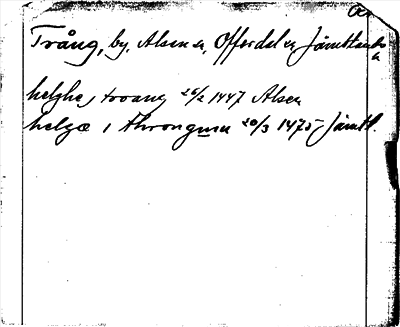 Trång, by, Alsen sn, Offerdal sn, Jämtlands
helghe, troang 26/2 1447 Alsen
helgæ i Throngmn 20/3 1475 Jämtl.